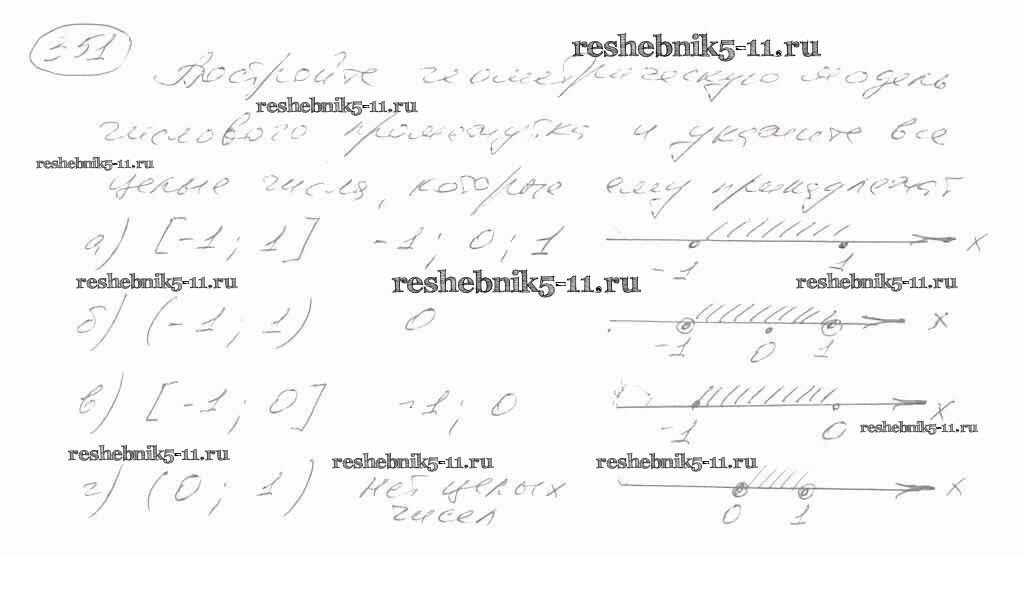 351
reshebnik5-11.ru
Постройте геометрическую модель
reshebnik5-11.ru
числового промежутка и укажите все
reshebnik5-11.ru
целые числа, которые ему принадлежат
а) [-1; 1] -1; 0; 1 -1 1 x
reshebnik5-11.ru reshebnik5-11.ru reshebnik5-11.ru
б) (-1; 1) 0 -1 0 1 x
в) [-1; 0] -1; 0 -1 0 x
reshebnik5-11.ru
reshebnik5-11.ru reshebnik5-11.ru reshebnik5-11.ru
г) (0; 1) нет целых 0 1 x
чисел